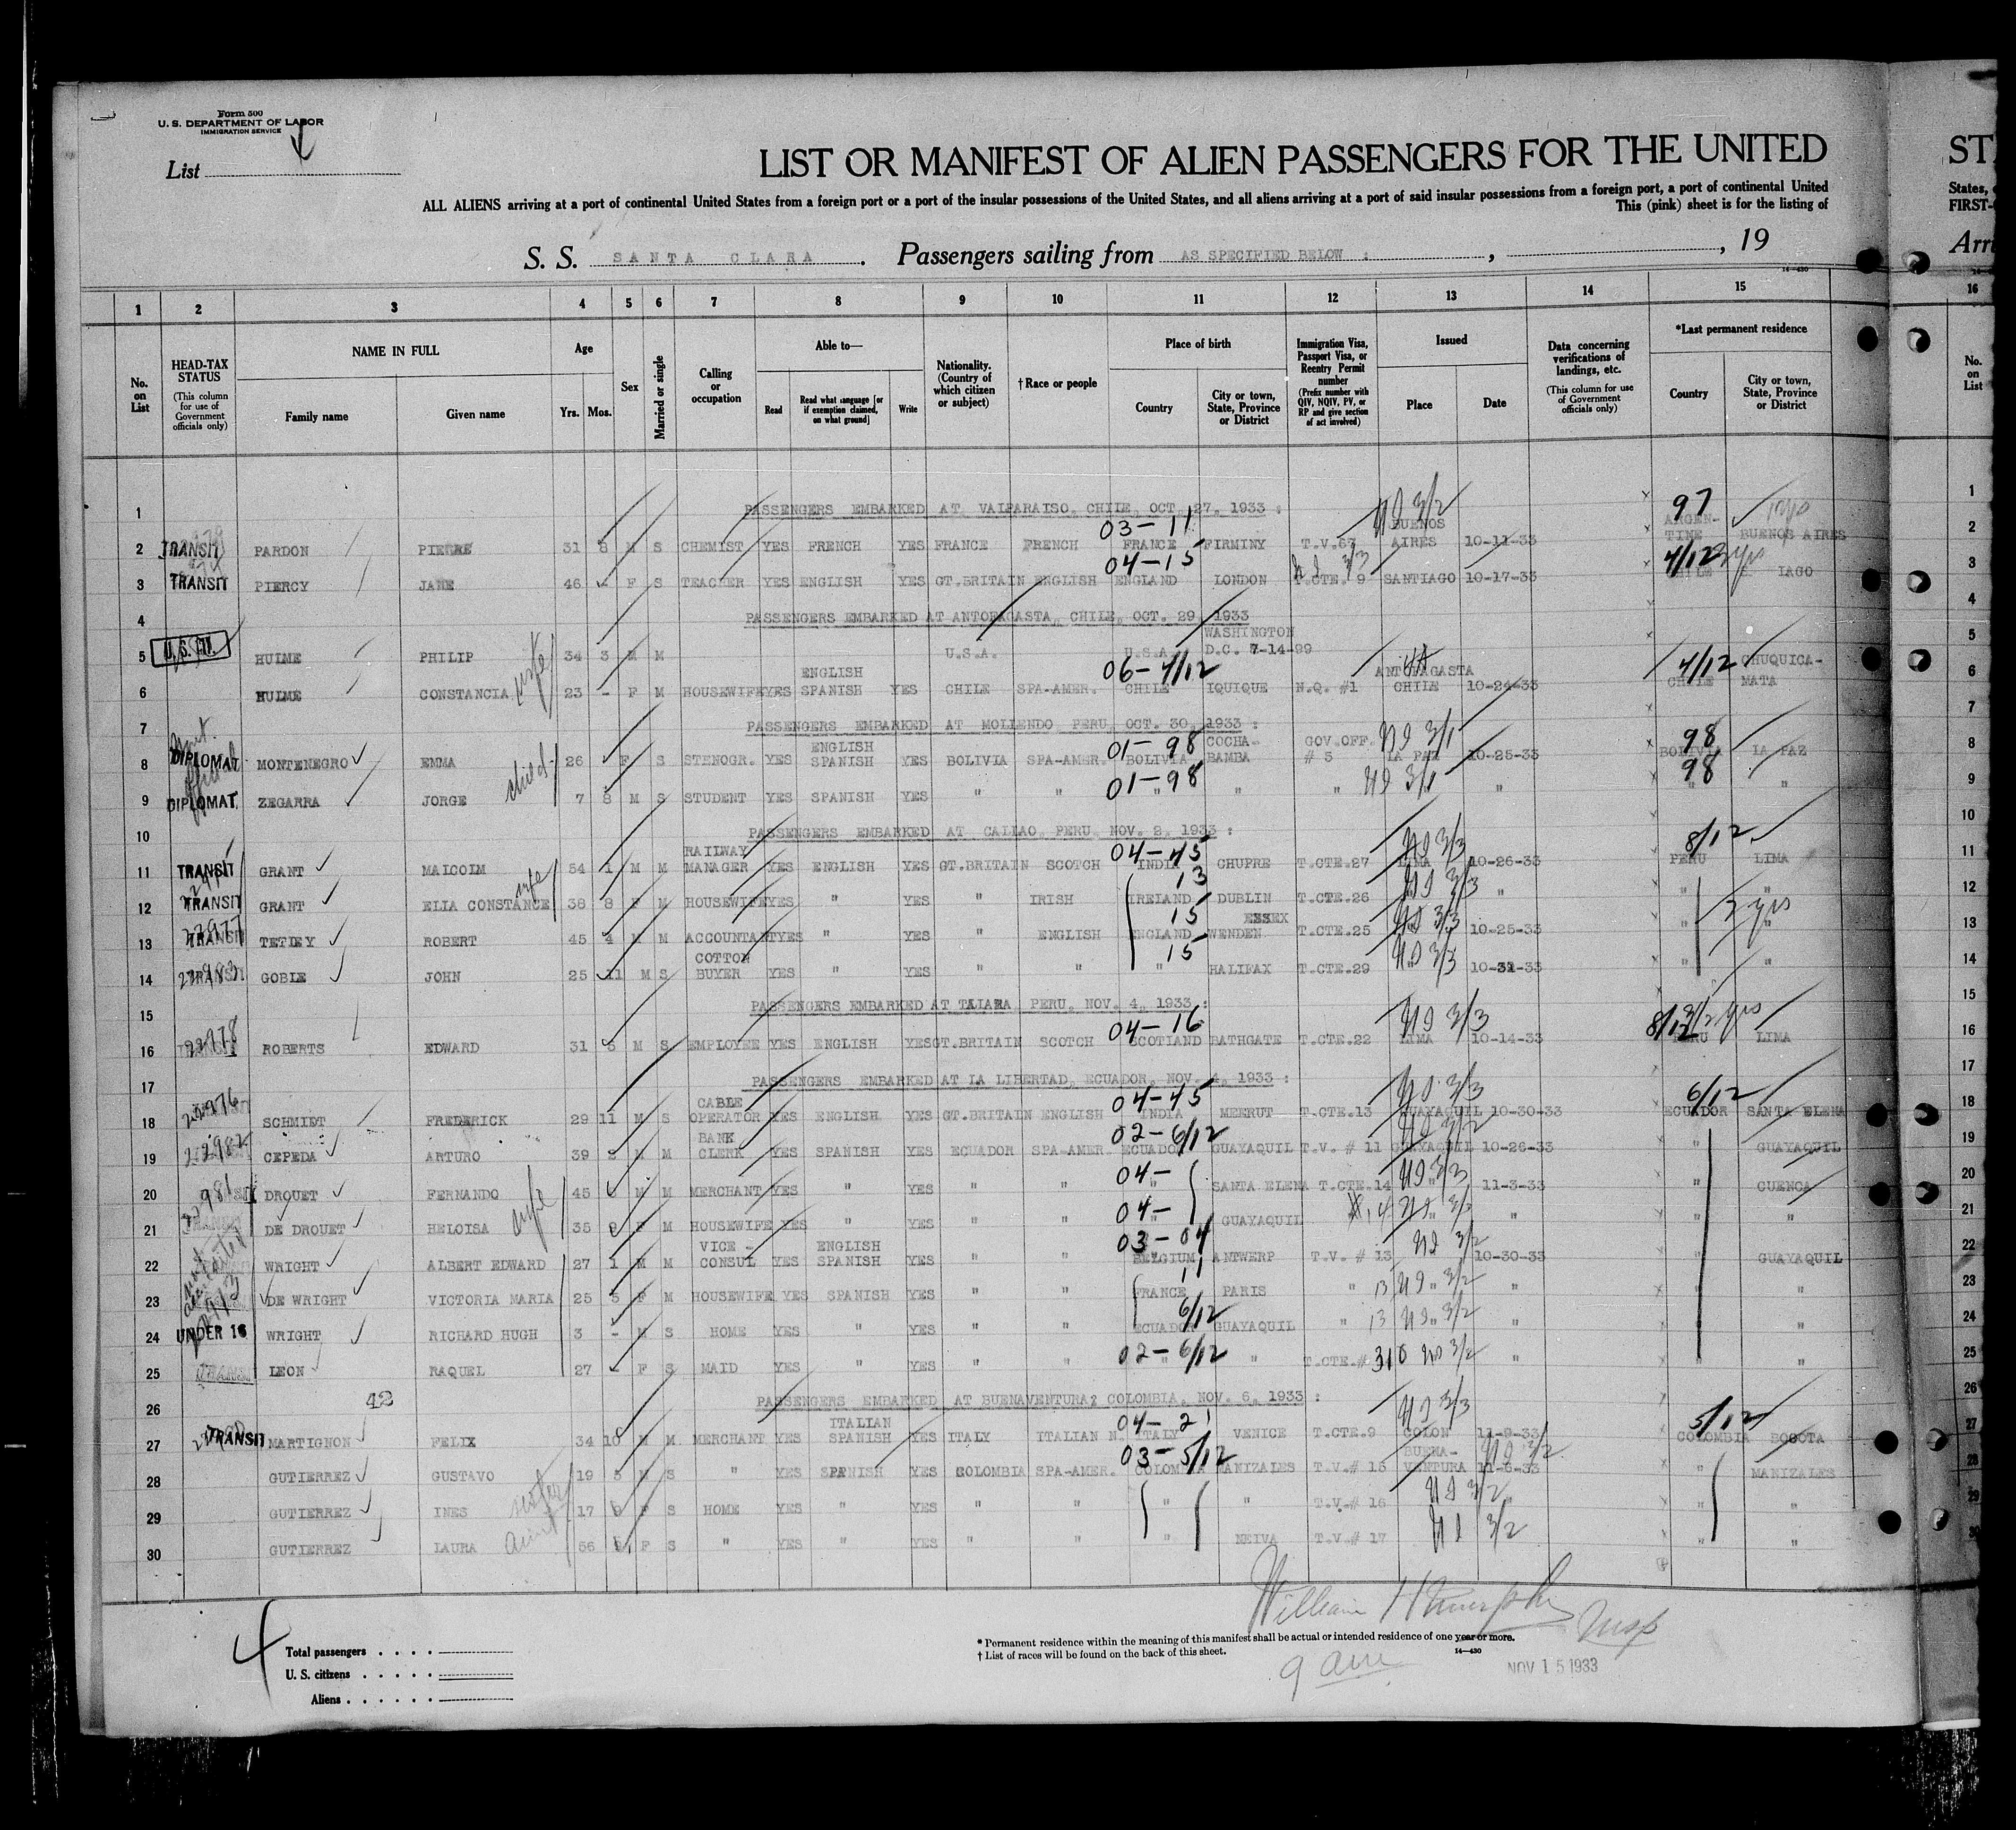 Form 500
U. S. DEPARTMENT OF LABOR
IMMIGRATION SERVICE
List 4
LIST OR MANIFEST OF ALIEN PASSENGERS FOR THE UNITED
ST
ALL ALIENS arriving at a port of continental United States from a foreign port or a port of the insular possessions of the United States, and all aliens arriving at a port of said insular possessions from a foreign port, a port of continental United
States,
This (pink) sheet is for the listing of
FIRST-
S. S. SANTA CLARA . Passengers sailing from AS SPECIFIED BELOW : , , 19
Arri
14—430
1 2 3 4 5 6 7 8 9 10 11 12 13 14 15 16
No. on List
HEAD-TAX STATUS
(This column for use of Government officials only)
NAME IN FULL
Family name
Given name
Age
Yrs. Mos.
Sex
Married or single
Calling or occupation
Able to—
Read
Read what language [or if exemption claimed, on what ground]
Write
Nationality. (Country of which citizen or subject)
† Race or people
Place of birth
Country
City or town, State, Province or District
Immigration Visa, Passport Visa, or Reentry Permit number
(Prefix number with QIV, NQIV, PV, or RP and give section of act involved)
Issued
Place
Date
Data concerning verifications of landings, etc.
(This column for use of Government officials only)
*Last permanent residence
Country
City or town, State, Province or District
No. on List
1 PASSENGERS EMBARKED AT VALPARAISO, CHILE, OCT. 27, 1933 :
03-11 97
2 TRANSIT PARDON PIERRE 31 8 M S CHEMIST YES FRENCH YES FRANCE FRENCH FRANCE FIRMINY T.V.67 BUENOS AIRES 10-11-33 ARGEN-TINE BUENOS AIRES
04-15 4/12 3 yrs
3 TRANSIT PIERCY JANE 46 - F S TEACHER YES ENGLISH YES GT.BRITAIN ENGLISH ENGLAND LONDON T.CTE. 9 SANTIAGO 10-17-33
4 PASSENGERS EMBARKED AT ANTOFAGASTA, CHILE, OCT. 29, 1933
5 U.S. CIT. HULME PHILIP 34 3 M M U.S.A. U.S.A. WASHINGTON D.C. 7-14-99
06-4/12 4/12
6 HULME CONSTANCIA wife 23 - F M HOUSEWIFE YES ENGLISH SPANISH YES CHILE SPA-AMER. CHILE IQUIQUE N.Q. #1 ANTOFAGASTA CHILE 10-24-33 CHILE CHUQUICA-MATA
7 PASSENGERS EMBARKED AT MOLLENDO PERU, OCT. 30, 1933 :
01-98 98
8 DIPLOMAT MONTENEGRO EMMA 26 F S STENOGR. YES ENGLISH SPANISH YES BOLIVIA SPA-AMER. BOLIVIA COCHA-BAMBA GOV.OFF. # 5 LA PAZ 10-25-33 BOLIVIA LA PAZ
01-98 98
9 DIPLOMAT ZEGARRA JORGE child 7 8 M S STUDENT YES SPANISH YES " " " " " " " "
10 PASSENGERS EMBARKED AT CALLAO, PERU, NOV. 2, 1933 :
04-45 8/12
11 TRANSIT GRANT MALCOLM 54 1 M M RAILWAY MANAGER YES ENGLISH YES GT.BRITAIN SCOTCH INDIA CHUPRE T.CTE.27 LIMA 10-26-33 PERU LIMA
13
12 TRANSIT GRANT ELIA CONSTANCE wife 38 8 F M HOUSEWIFE YES " YES " IRISH IRELAND DUBLIN T.CTE.26 " " "
15 3 yrs
13 22977 TRANSIT TETLEY ROBERT 45 4 M M ACCOUNTANT YES " YES " ENGLISH ENGLAND ESSEX WENDEN T.CTE.25 10-25-33 " "
15
14 22983 TRANSIT GOBLE JOHN 25 11 M S COTTON BUYER YES " YES " " " HALIFAX T.CTE.29 " 10-31-33 " "
15 PASSENGERS EMBARKED AT TALARA PERU, NOV. 4, 1933 :
04-16 8/12
16 22978 ROBERTS EDWARD 31 5 M S EMPLOYEE YES ENGLISH YES GT.BRITAIN SCOTCH SCOTLAND BATHGATE T.CTE.22 LIMA 10-14-33 PERU LIMA
17 PASSENGERS EMBARKED AT LA LIBERTAD, ECUADOR, NOV. 4, 1933 :
04-45 6/12
18 22976 SCHMIDT FREDERICK 29 11 M S CABLE OPERATOR YES ENGLISH YES GT.BRITAIN ENGLISH INDIA MEERUT T.CTE.13 GUAYAQUIL 10-30-33 ECUADOR SANTA ELENA
02-6/12
19 22982 CEPEDA ARTURO 39 M M BANK CLERK YES SPANISH YES ECUADOR SPA-AMER. ECUADOR GUAYAQUIL T.V. # 11 GUAYAQUIL 10-26-33 " GUAYAQUIL
04-
20 22981 DROUET FERNANDO 45 M M MERCHANT YES " YES " " " SANTA ELENA T.CTE.14 " 11-3-33 " CUENCA
04-
21 DE DROUET HELOISA wife 35 F M HOUSEWIFE YES " YES " " " GUAYAQUIL 14 " " " "
03-04
22 WRIGHT ALBERT EDWARD 27 1 M M VICE - CONSUL YES ENGLISH SPANISH YES " " BELGIUM ANTWERP T.V. # 13 10-30-33 " GUAYAQUIL
11
23 DE WRIGHT VICTORIA MARIA 25 5 F M HOUSEWIFE YES SPANISH YES " " FRANCE PARIS " 13 " " " "
6/12
24 UNDER 16 WRIGHT RICHARD HUGH 3 - M S HOME YES " YES " " ECUADOR GUAYAQUIL " 13 " " "
02-6/12
25 LEON RAQUEL 27 - F S MAID YES " YES " " " " T.CTE.# 310 " " "
42
26 PASSENGERS EMBARKED AT BUENAVENTURA, COLOMBIA, NOV. 6, 1933 :
04-21 5/12
27 TRANSIT MARTIGNON FELIX 34 10 M M MERCHANT YES ITALIAN SPANISH YES ITALY ITALIAN N. ITALY VENICE T.CTE.9 COLON 11-9-33 COLOMBIA BOGOTA
03-5/12
28 GUTIERREZ GUSTAVO 19 5 M S " YES SPANISH YES COLOMBIA SPA-AMER. COLOMBIA MANIZALES T.V.# 15 BUENA-VENTURA 11-6-33 " MANIZALES
29 GUTIERREZ INES sister 17 F S HOME YES " YES " " " " T.V.# 16 " " "
30 GUTIERREZ LAURA Aunt 56 F S " YES " YES " " " NEIVA T.V.# 17 " "
4
William H Murphy Insp
Total passengers . . . .
U. S. citizens . . . . .
Aliens . . . . . .
* Permanent residence within the meaning of this manifest shall be actual or intended residence of one year or more.
† List of races will be found on the back of this sheet.
14—430
9 am
NOV 15 1933